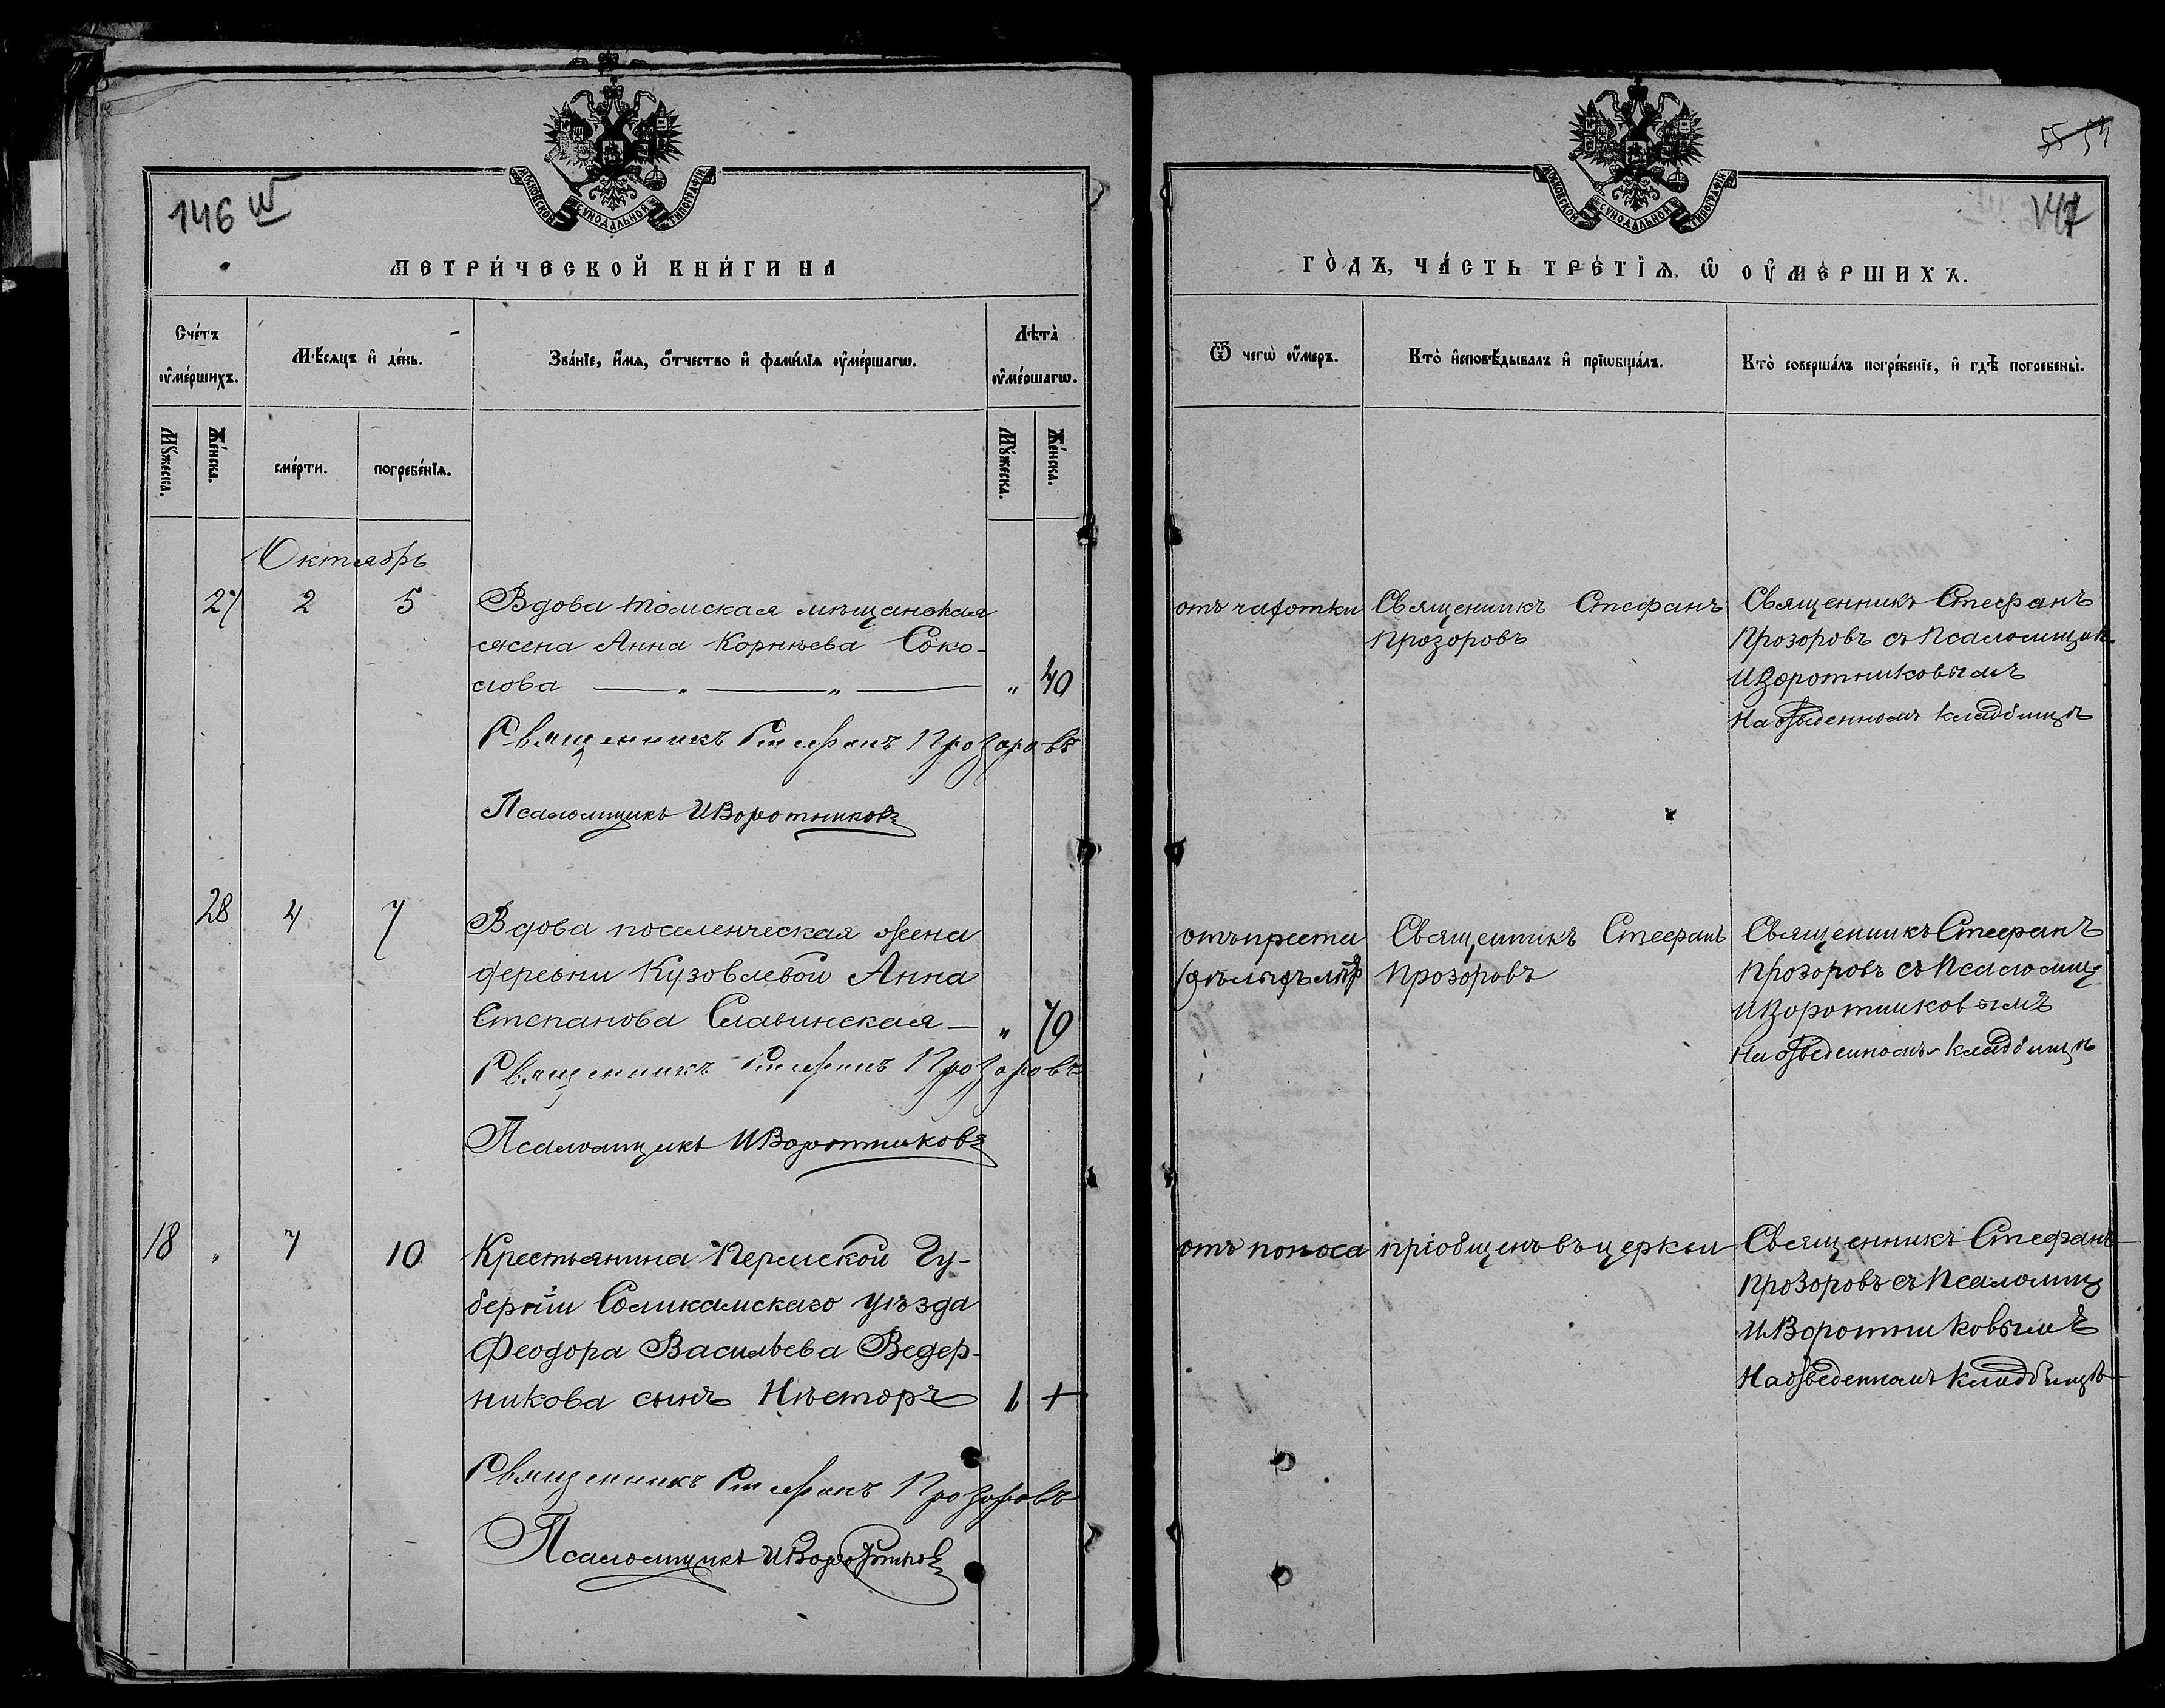 МОСКОВСКОЙ СУНОДАЛЬНОЙ ТИПОГРАФІИ
146
МЕТРИ́ЧЕСКОЙ КНИ́ГИ НА
Сче́тъ ѹ҆ме́ршихъ.
Мѣ́сяцъ и҆ де́нь.
Зва́нїе, и҆́мя, ѻ҆́тчество и҆ фами́лїя ѹ҆ме́ршагѡ.
Лѣта̀ ѹ҆ме́ршагѡ.
Мꙋ́жеска.
Же́нска.
сме́рти.
погребе́нїя.
Мꙋ́жеска.
Же́нска.
Октябрь
27 2 5 Вдова томская мѣщанская
жена Анна Корнѣева Соко-
лова — „ — „ — „ 40
Священникъ Стефанъ Прозоровъ
Псаломщикъ ИВоротниковъ
28 4 7 Вдова поселенческая жена
деревни Кузовлевой Анна
Степанова Славинская — „ 70
Священникъ Стефанъ Прозоровъ
Псаломщикъ ИВоротниковъ
18 „ 7 10 Крестьянина Пермской Гу-
берніи Соликамскаго уѣзда
Феодора Васильева Ведер-
никова сынъ Нѣсторъ 1
Священникъ Стефанъ Прозоровъ
Псаломщикъ ИВоротниковъ
МОСКОВСКОЙ СУНОДАЛЬНОЙ ТИПОГРАФІИ
147
ГО́ДЪ, ЧА́СТЬ ТРЕ́ТЇѦ, Ѡ҆ ОУ҆МЕ́РШИХЪ.
Ѿ чегѡ̀ ѹ҆́меръ.
Кто̀ и҆сповѣ́дывалъ и҆ прїѡбща́лъ.
Кто̀ соверша́лъ погребе́нїе, и҆ гдѣ̀ погребены̀.
отъ чахотки
Священникъ Стефанъ
Прозоровъ
Священникъ Стефанъ
Прозоровъ съ Псаломщик.
ИВоротниковымъ
На отведенномъ кладбищѣ
отъ преста
рѣлыхъ лѣтъ
Священникъ Стефанъ
Прозоровъ
Священникъ Стефанъ
Прозоровъ съ Псаломщ
ИВоротниковымъ
На отведенномъ кладбищѣ
отъ поноса
пріобщенъ въ церкви
Священникъ Стефанъ
Прозоровъ съ Псаломщ
ИВоротниковымъ
На отведенномъ кладбищѣ